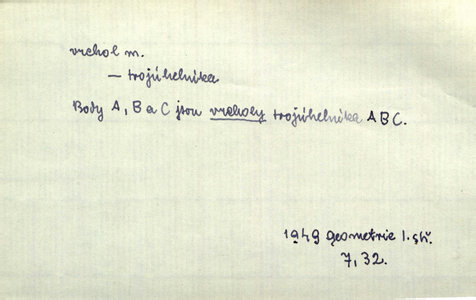 vrchol m.
— trojúhelníka
Body A, B a C jsou vrcholy trojúhelníka ABC.
1949 Geometrie I. stř.
7, 32.